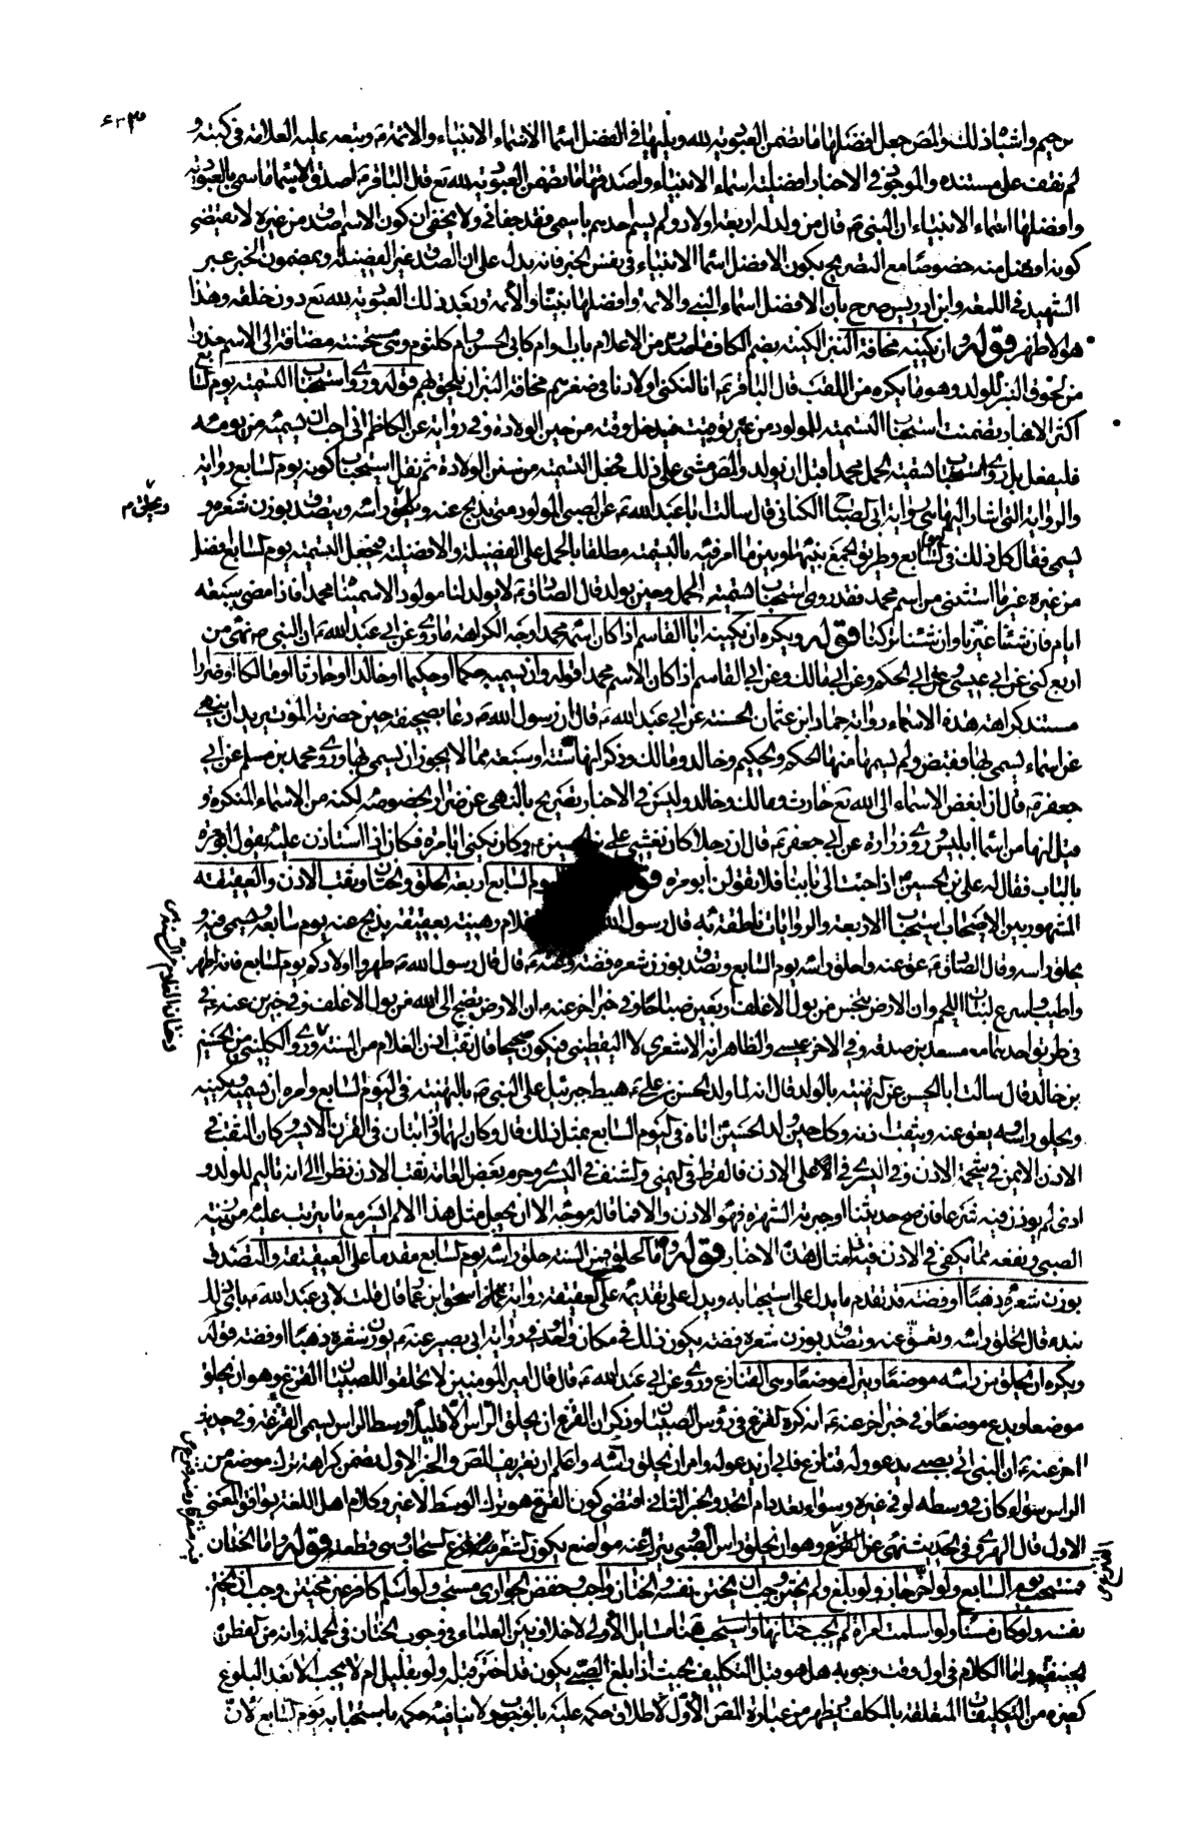 رحيم واشباه ذلك والمص جعل افضلها ما تضمن العبودية لله ويليها في الفضل اسماء الانبياء والائمة ع وتبعه عليه العلامة في كتبه و
لم نقف على مستنده والموجود في الاخبار افضلية اسماء الانبياء واصدقها ما تضمن العبودية لله تع قال الباقر ع اصدق الاسماء ما سمى بالعبودية
وافضلها اسماء الانبياء ان النبي ص قال من ولد له اربعة اولاد ولم يسم احدهم باسمي فقد جفاني ولا يخفى ان كون الاسم اصدق من غيره لا يقتضي
كونه افضل منه خصوصا مع التصريح بكون الافضل اسماء الانبياء في نفس الخبر فانه يدل على ان الصدق غير الفضيلة وبمضمون الخبر عبر
الشهيد في اللمعة وابن ادريس صرح بان الافضل اسماء النبي والائمة وافضلها نبينا والائمة وبعد ذلك العبودية لله تع دون خلقه وهذا
هو الاظهر قوله وان يكنيه مخافة النبز الكنية بضم الكاف ما صدر من الاعلام باب او ام كابي الحسن وام كلثوم
من لحوق النبز للولد وهو ما يكره من اللقب قال الباقر ع انا لنكني اولادنا في صغرهم مخافة النبز ان يلحق بهم قوله وروى استحباب التسمية يوم السابع
اكثر الاخبار تضمنت استحباب التسمية للمولود من غير توقيت فيدخل وقته من حين الولادة وفي رواية عن الكاظم
فليفعل بل روى استحباب تسمية الحمل محمدا قبل ان يولد والمص مشى على ذلك فجعل التسمية من سنن الولادة ثم نقل استحباب كونه يوم السابع رواية
والرواية التي اشار اليها هي رواية ابي الصباح الكناني قال سالت ابا عبد الله ع عن الصبي المولود متى يذبح عنه ويحلق راسه ويتصدق بوزن شعره و
ويحلق م
يسمى فقال كل ذلك في السابع وطريق الجمع بينها وبين ما امر فيه بالتسمية مطلقا بالحمل على الفضيلة والافضلية فيجعل التسمية يوم السابع افضل
من غيره غير ما استثنى من اسم محمد فقد روى استحباب تسمية الحمل وحين يولد قال الصادق ع لا يولد لنا مولود الا سميناه محمدا فاذا مضى سبعة
ايام فان شئنا غيرنا وان شئنا تركنا قوله ويكره ان يكنيه ابا القاسم اذا كان اسمه محمدا وجه الكراهة ما روى عن ابي عبد الله ع ان النبي ص نهى عن
اربع كنى عن ابي عيسى وعن ابي الحكم وعن ابي مالك وعن ابي القاسم اذا كان الاسم محمدا قوله وان يسميه حكما او حكيما او خالدا او حارثا او مالكا او ضرارا
مستند كراهة هذه الاسماء رواية حماد ابن عثمان الحسنة عن ابي عبد الله ع قال ان رسول الله ص دعا بصحيفة حين حضره الموت يريد ان ينهى
عن اسماء يسمى بها فقبض ولم يسمها منها الحكم وحكيم وخالد ومالك وذكر انها ستة او سبعة مما لا يجوز ان يسمى بها وروى محمد بن مسلم عن ابي
جعفر ع قال ان ابغض الاسماء الى الله تع حارث ومالك وخالد وليس في الاخبار تصريح بالنهي عن ضرار بخصوصه لكنه من الاسماء المنكرة و
قيل انها من اسماء ابليس وروى زرارة عن ابي جعفر ع قال ان رجلا كان يغشى على بن الحسين ع وكان يكنى ابا مرة فكان اذا استاذن عليه يقول ابو مرة
بالباب فقال له علي بن الحسين ع اذا جئت الى بابنا فلا يقولن ابو مرة يوم السابع اربعة الحلق والختان وثقب الاذن والعقيقة
المشهور بين الاصحاب استحباب الاربعة والروايات ناطقة به قال رسول الله غلام رهينة بعقيقته يذبح عنه يوم سابعه ويسمى فيه و
يحلق راسه وقال الصادق ع عق عنه واحلق راسه يوم السابع وتصدق بوزن شعره فضة وعنه ع قال قال رسول الله ص طهروا اولادكم يوم السابع فانه اطهر
واطيب واسرع لنبات اللحم وان الارض تنجس من بول الاغلف اربعين صباحا وفي خبر اخر عنه ع ان الارض تضج الى الله من بول الاغلف وفي خبرين عنه ع
في طريق احدهما مسعدة بن صدقة وفي الاخر عيسى والظاهر انه الاشعري لا اليقطيني فيكون صحيحا قال ثقب اذن الغلام من السنة وروى الكليني عن الحسين
وختان الغلام من السنة
بن خالد قال سالت ابا الحسن عن التهنية بالولد قال انه لما ولد الحسن بن علي ع هبط جبرئيل على النبي ص بالتهنية في اليوم السابع وامره ان يسميه ويكنيه
ويحلق راسه ويعق عنه ويثقب اذنه وكذلك حين ولد الحسين اتاه في اليوم السابع بمثل ذلك قال وكان لهما ذؤابتان في القرن الايسر وكان الثقب في
الاذن الايمن في شحمة الاذن وفي اليسرى في اعلى الاذن فالقرط في اليمنى والشنف في اليسرى وحرم بعض العامة ثقب الاذن نظرا الى انه تاليم للولد و
اذى لم يؤذن فيه شرعا فان صح حديثنا او جبرته الشهرة فهو الاذن والا فما قاله موجه الا ان يجعل مثل هذا الالم اليسير مع ما يترتب عليه من زينة
الصبي ونفعه مما يكفي في الاذن فيه امثال هذه الاخبار قوله واما الحلق فمن السنة حلق راسه يوم السابع مقدما على العقيقة والتصدق
بوزن شعره ذهبا او فضة قد تقدم ما يدل على استحبابه ويدل على تقديمه على العقيقة رواية اسحق ابن عمار قال قلت لابي عبد الله ع باي ذلك
نبدء قال تحلق راسه وتعق عنه وتصدق بوزن شعره فضة يكون ذلك في مكان واحد وفي رواية ابي بصير عنه ع بوزن شعره ذهبا او فضة قوله
ويكره ان يحلق من راسه موضعا ويترك موضعا وهي القنازع روى عن ابي عبد الله ع قال قال امير المؤمنين لا تحلقوا للصبيان القزع وهو ان يحلق
موضعا ويدع موضعا وفي خبر اخر عنه ع انه كره القزع في رؤس الصبيان وذكر ان القزع ان يحلق الراس الا قليلا وسط الراس يسمى القزعة وفي حديث
اخر عنه ع ان النبي اتى بصبي يدعو له وله قنازع فابى ان يدعو له وامر ان يحلق راسه واعلم ان تعريف المص والخبر الاول تضمن كراهة ترك موضع من
الراس سواء كان في وسطه او في غيره وسواء تعدد ام اتحد والخبر الثاني اقتضى كون القزع هو ترك الوسط لا غير وكلام اهل اللغة يوافق المعنى
الاول قال الهروي وفي الحديث نهى عن القزع وهو ان يحلق راس الصبي ويترك منه مواضع يكون الشعر قوله واما الختان
فمستحب يوم السابع ولو اخر جاز ولو بلغ ولم يختتن وجب ان يختن نفسه والختان واجب وخفض الجواري مستحب ولو اسلم كافر غير مختتن وجب ان يختن
نفسه ولو كان مسنا ولو اسلمت امراة لم يجب ختانها واستحب هنا مسايل الاولى لا خلاف بين العلماء في وجوب الختان في الجملة وانه من الفطرة
الحنيفية واما الكلام في اول وقت وجوبه هل هو قبل التكليف بحيث اذا بلغ الصبي يكون قد اختتن قبله ولو بقليل ام لا يجب الا بعد البلوغ
كغيره من التكليفات المتعلقة بالمكلف يظهر من عبارة المص الاول لاطلاق حكمه عليه بالوجوب ولا ينافيه حكمه باستحبابه يوم السابع لان